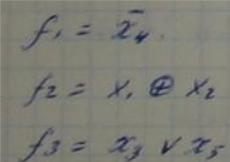 f₁ = x̄₄.
f₂ = x₁ ⊕ x₂
f₃ = x₃ ∨ x₅